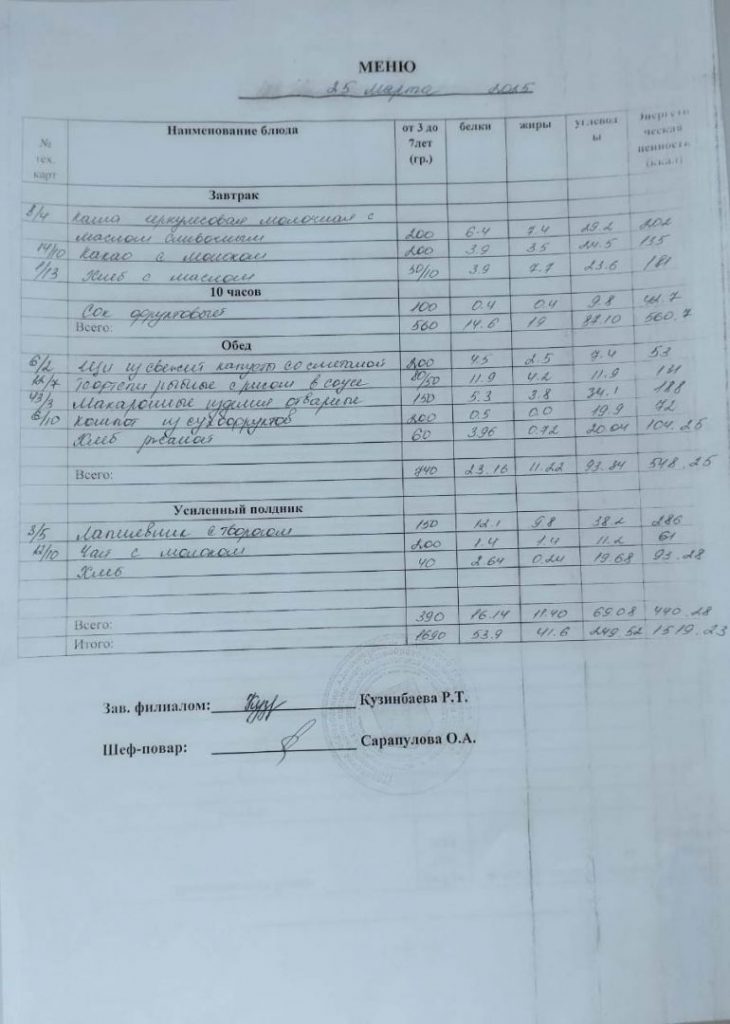 МЕНЮ
25 марта 2025
№ тех. карт Наименование блюда от 3 до 7лет (гр.) белки жиры углеводы Энергетическая ценность (ккал)
Завтрак
8/4 Каша геркулесовая молочная с
маслом сливочным 200 6.4 7.4 29.2 202
14/10 Какао с молоком 200 3.9 3.5 24.5 135
1/13 Хлеб с маслом 30/10 3.9 7.7 23.6 181
10 часов
Сок фруктовый 100 0.4 0.4 9.8 42.7
Всего: 560 14.6 19 87.10 560.7
Обед
6/2 Щи из свежей капусты со сметаной 200 4.5 2.5 7.4 53
Тефтели рыбные с рисом в соусе 80/50 11.9 4.2 11.9
43/3 Макаронные изделия отварные 150 5.3 3.8 34.1 188
6/10 Компот из сухофруктов 200 0.5 0.0 19.9 72
Хлеб ржаной 60 3.96 0.72 20.04 104.25
Всего: 740 23.16 11.22 93.34 548.25
Усиленный полдник
3/5 Лапшевник с творогом 150 12.1 9.8 38.2 286
12/10 Чай с молоком 200 1.4 1.4 11.2 61
Хлеб 40 2.64 0.24 19.68 93.28
Всего: 390 16.14 11.40 69.08 440.28
Итого: 1690 53.9 41.6 249.52 1519.23
Зав. филиалом: Кузинбаева Р.Т.
Шеф-повар: Сарапулова О.А.